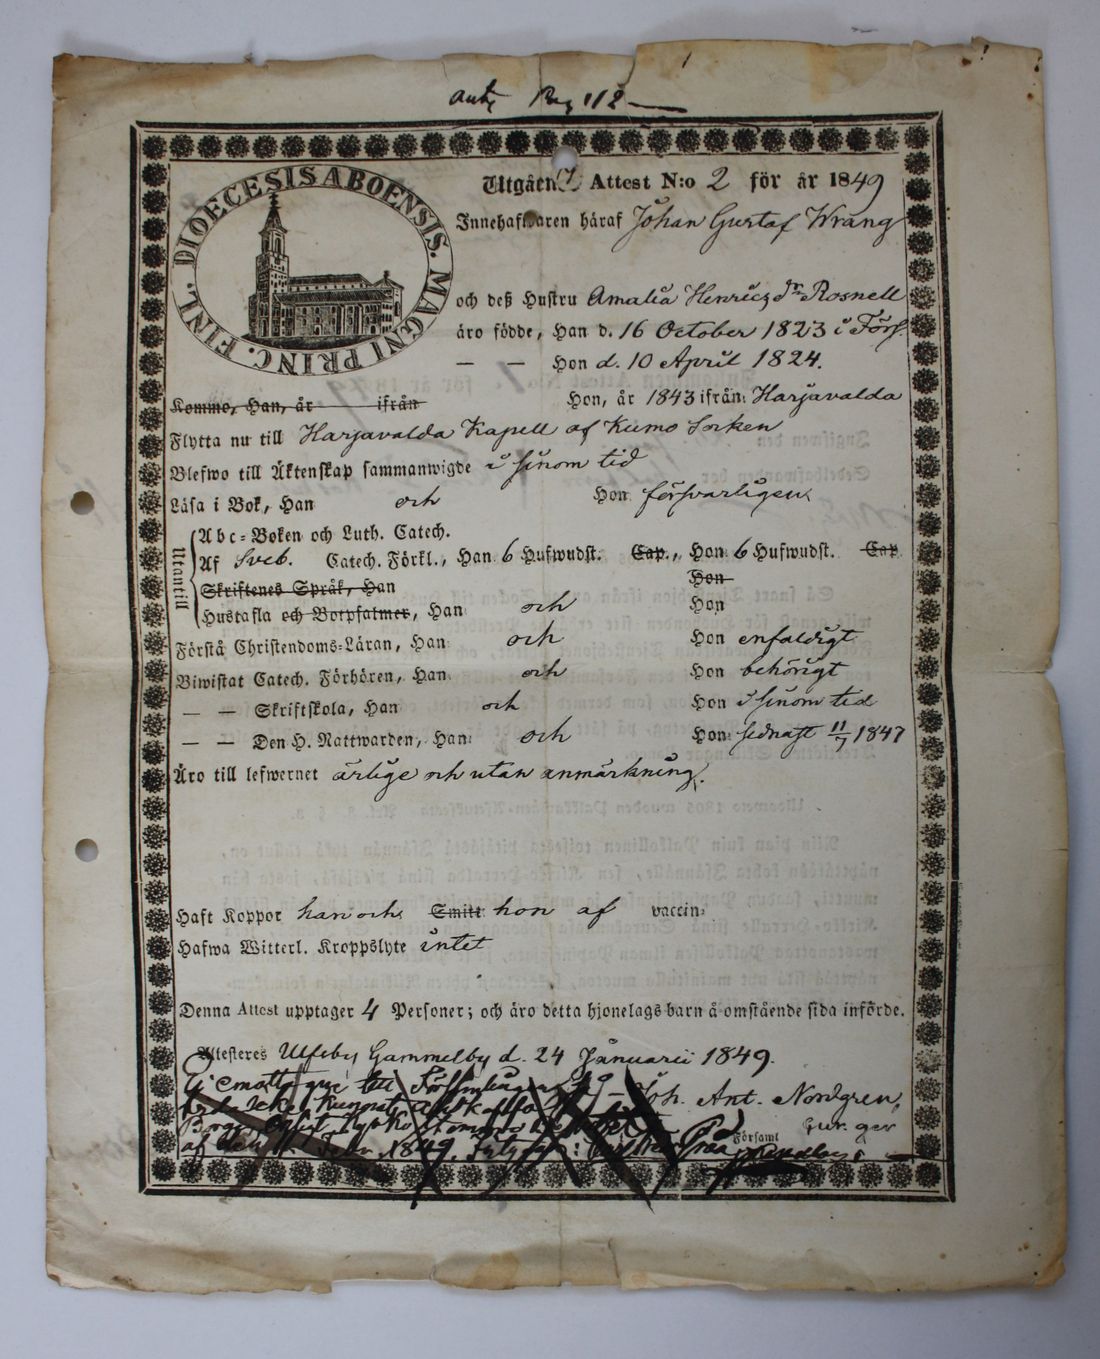 DIOECESIS ABOENSIS. MAGNI PRINC. FINL.
Utgåen Attest N:o 2 för år 1849
Innehafwaren häraf Johan Gustaf Wrang
och deß Hustru Amalia Henricsdr Rosnell
äro födde, Han d. 16 October 1823 i Förs
— — Hon d. 10 April 1824.
Kommo, Han, år ifrån Hon, år 1843 ifrån Harjavalda
Flytta nu till Harjavalda Kapell af Kumo Socken
Blefwo till Äktenskap sammanwigde i sinom tid
Läsa i Bok, Han och Hon försvarligen
Utantill
Abc-Boken och Luth. Catech.
Af Sveb. Catech. Förkl., Han 6 Hufwudst. Cap., Hon 6 Hufwudst. Cap
Skriftenes Språk, Han Hon
Hustafla och Botpsalmer, Han och Hon
Förstå Christendoms-Läran, Han och Hon enfaldigt
Biwistat Catech. Förhören, Han och Hon behörigt
— — Skriftskola, Han och Hon i sinom tid
— — Den H. Nattwarden, Han och Hon sednast 11/7 1847
Äro till lefwernet ärlige och utan anmärkning.
Haft Koppor han och Smitt hon af vaccin
Hafwa Witterl. Kroppslyte intet
Denna Attest upptager 4 Personer; och äro detta hjonelags barn å omstående sida införde.
Attesteres Ulfsby Gammelby d. 24 Januarii 1849.
Joh. Ant. Nordgren,
Församl